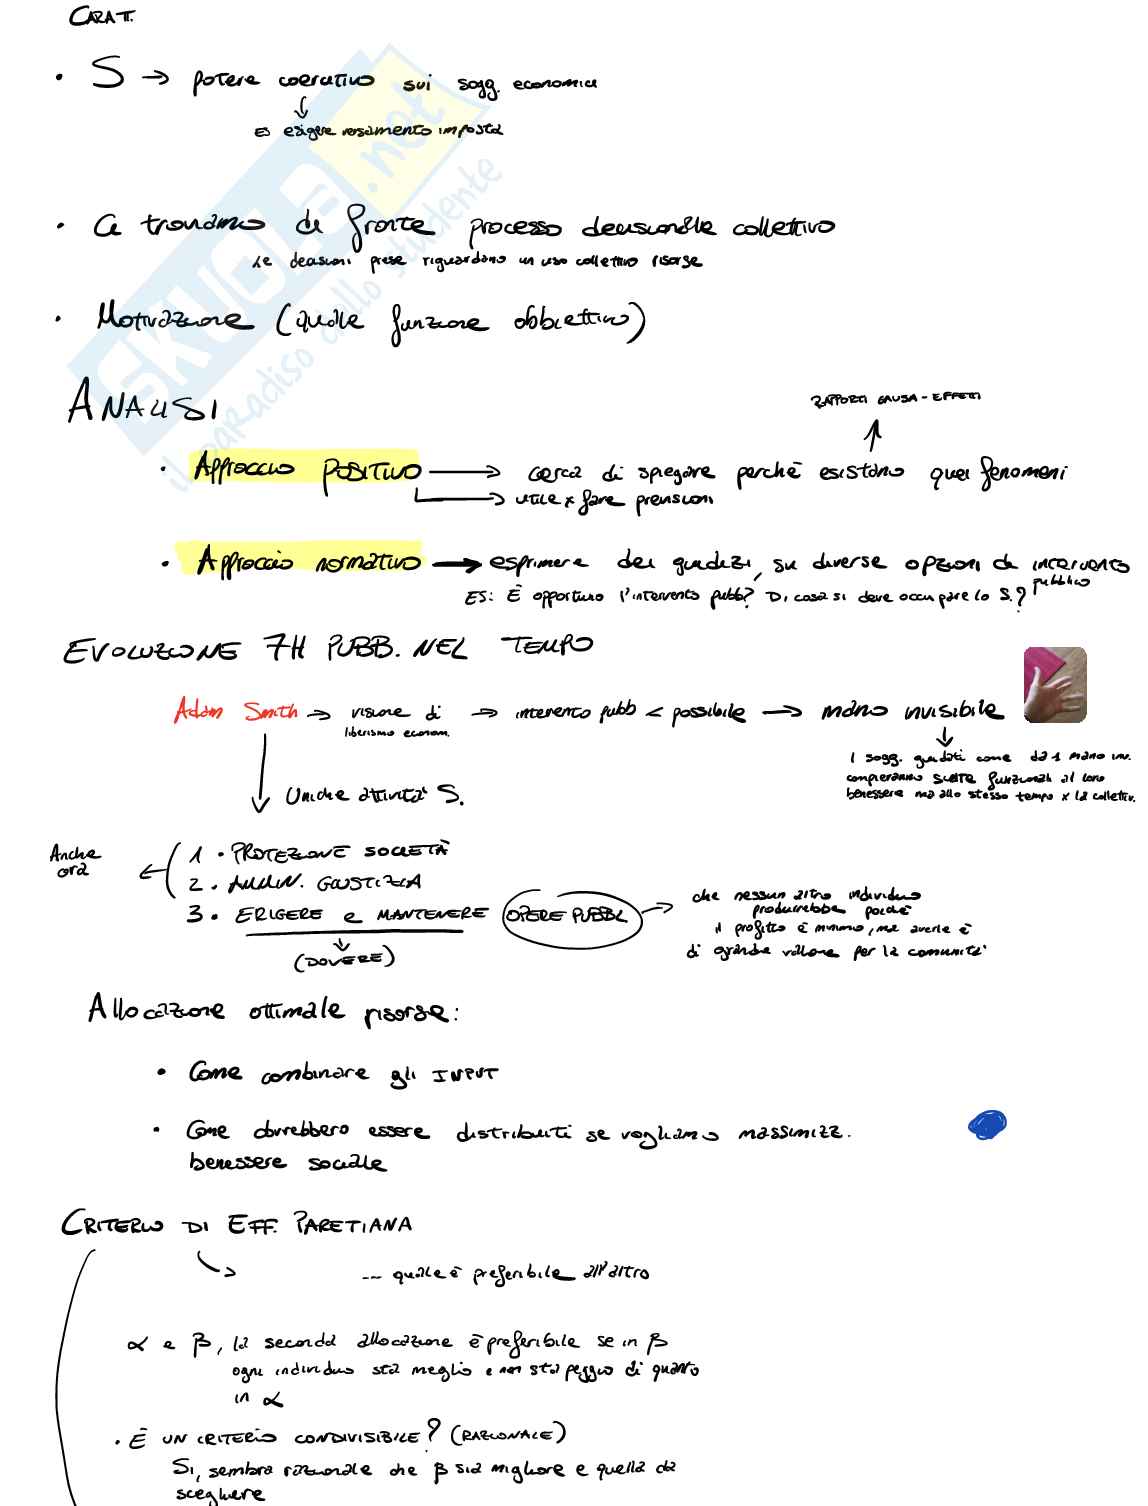 CARATT.
• S → potere coercitivo sui sogg. economici
ES esigere versamento imposta
• Ci troviamo di fronte processo decisionale collettivo
Le decisioni prese riguardano un uso collettivo risorse
• Motivazione (quale funzione obbiettivo)
ANALISI
RAPPORTI CAUSA - EFFETTI
• Approccio POSITIVO → cerca di spiegare perchè esistano quei fenomeni
→ utile x fare previsioni
• Approccio normativo → esprimere dei giudizi, su diverse opzioni di intervento
pubblico
ES: È opportuno l'intervento pubb? Di cosa si deve occupare lo S.?
EVOLUZIONE PUBB. NEL TEMPO
Adam Smith → visione di → intervento pubb < possibile → mano invisibile
liberismo econom.
I sogg. guidati come da 1 mano inv.
compieranno scelte funzionali al loro
benessere ma allo stesso tempo x la collettiv.
Uniche attività S.
Anche
ora
1 • PROTEZIONE SOCIETÀ
2 • AMMIN. GIUSTIZIA
3 • ERIGERE e MANTENERE OPERE PUBBL → che nessun altro individuo
produrrebbe poichè
il profitto è minimo, ma averle è
di grande valore per la comunità
(DOVERE)
Allocazione ottimale risorse:
• Come combinare gli INPUT
• Come dovrebbero essere distribuiti se vogliamo massimizz.
benessere sociale
CRITERIO DI EFF. PARETIANA
... quale è preferibile all'altro
α e β, la seconda allocazione è preferibile se in β
ogni individuo sta meglio e non sta peggio di quanto
in α
• È UN CRITERIO CONDIVISIBILE? (RAZIONALE)
Si, sembra razionale che β sia migliore e quella da
scegliere
SKUOLA.net
il paradiso dello studente